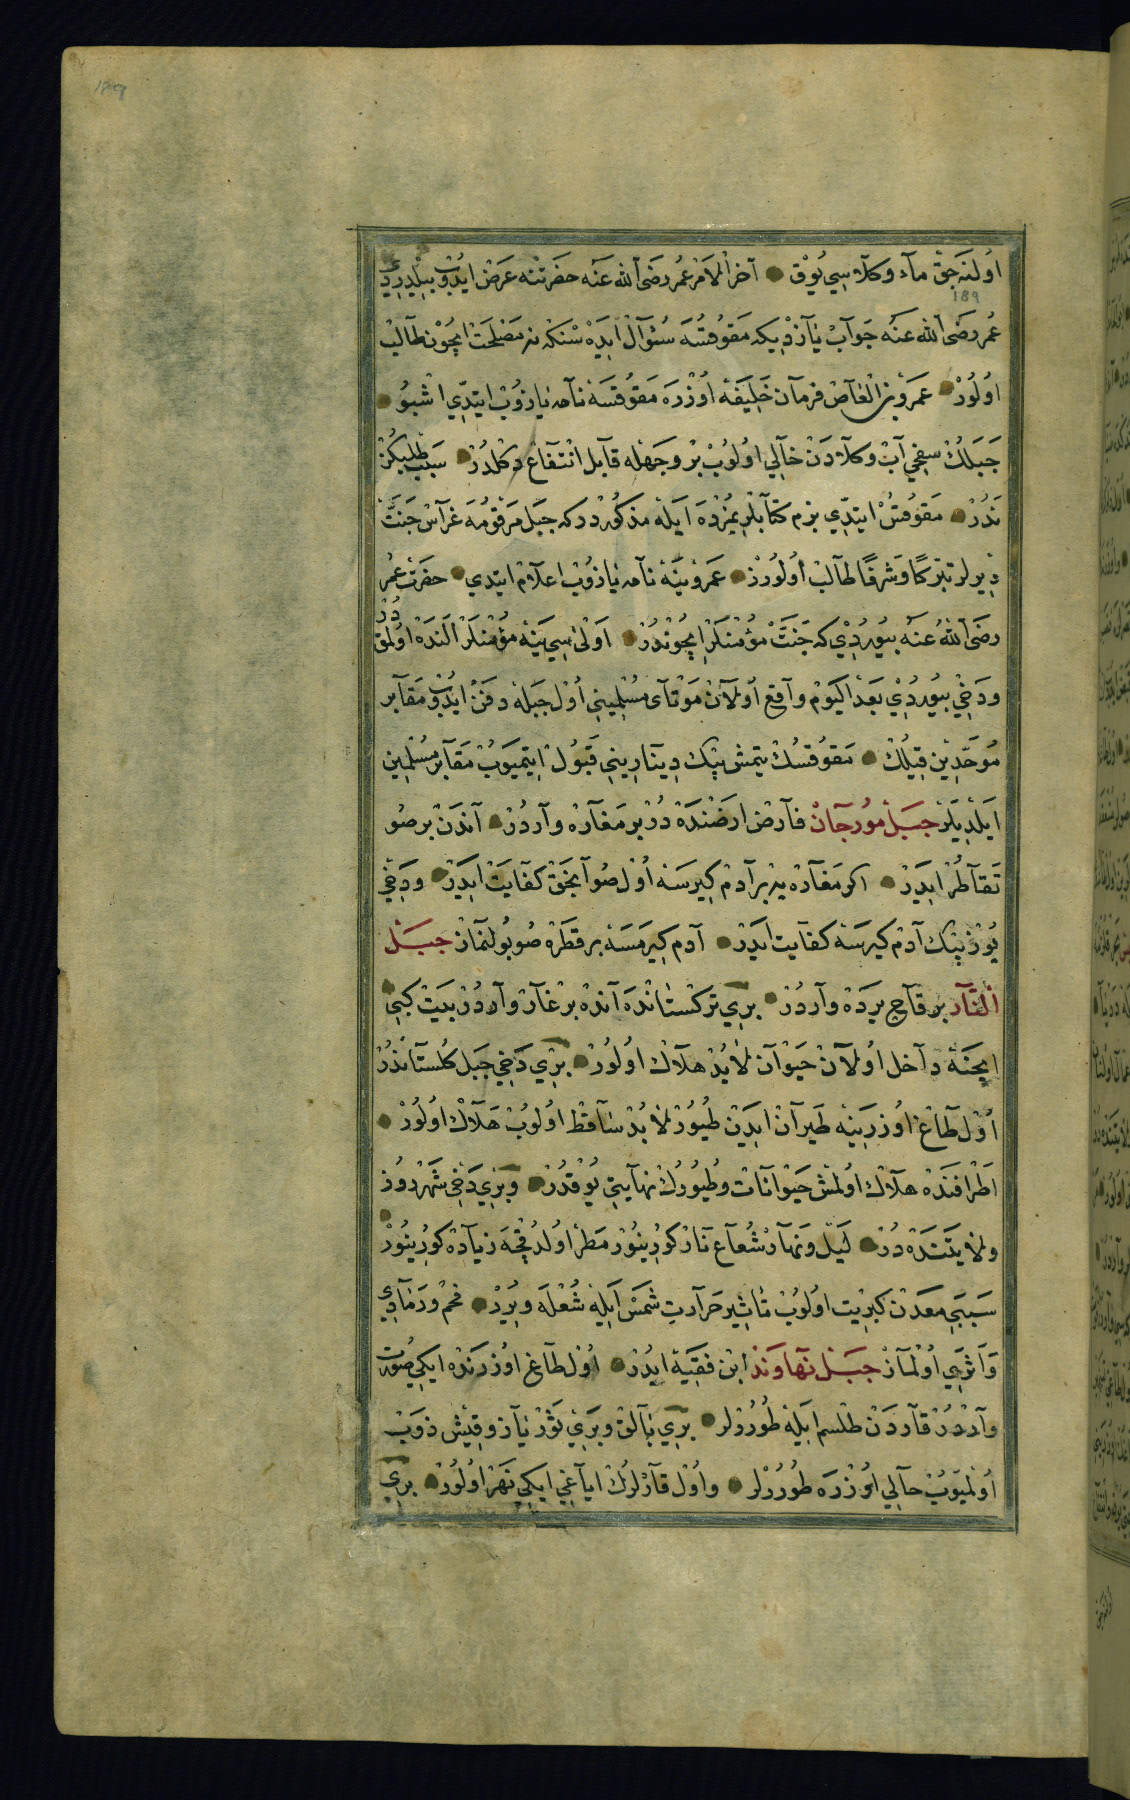 اولنه جق ماء وكلاسی یوق آخر الامر عمر رضی الله عنه حضرتنه عرض ایدوب بیلدیردی
189
عمر رضی الله عنه جواب یازدیكه مقوقسه سؤال ایده سنكه نه مصلحت ایچون طالب
اولور عمرو بن العاص فرمان خلیفه اوزره مقوقسه نامه یازوب ایتدی اشبو
جبلك سفحی آب وكلادن خالی اولوب بر وجهله قابل انتفاع دكلدر سبب طلبكز
ندر مقوقس ایتدی بزم كتابلریمزده ایله مذكوردر كه جبل مرقومه غراس جنت
دیرلر تبركا وشرفا طالب اولورز عمرو ینه نامه یازوب اعلام ایتدی حضرت عمر
رضی الله عنه بیوردی كه جنت مؤمنلر ایچوندر اولیسی ینه مؤمنلر النده اولمق در
ودخی بیوردی بعد الیوم واقع اولان موتای مسلمینی اول جبله دفن ایدوب مقابر
موحدین قیلك مقوقسك یتمش بیك دینارینی قبول ایتمیوب مقابر مسلمین
ایلدیلر جبل مورجان فارض ارضنده در بر مغاره واردر آندن بر صو
تقاطر ایدر اكر مغاره یه بر آدم كیرسه اول صو آنجق كفایت ایدر ودخی
یوز بیك آدم كیرسه كفایت ایدر آدم كیرمسه بر قطره صو بولنماز جبل
النار بر قاچ یرده واردر بری تركستانده آنده بر غار واردر بیت كبی
ایچنه داخل اولان حیوان لابد هلاك اولور بری دخی جبل كلستاندر
اول طاغ اوزرینه طیران ایدن طیور لابد ساقط اولوب هلاك اولور
اطرافنده هلاك اولمش حیوانات وطیورك نهایتی یوقدر وبری دخی شهردوز
ولایتنده در لیل ونهار شعاع نار كورینور مطر اولدقجه زیاده كورینور
سببی معدن كبریت اولوب تأثیر حرارت شمس ایله شعله ویرر فحم ورمادی
واثری اولماز جبل نهاوند ابن فقیه ایدر اول طاغ اوزرنده ایكی صورت
واردر قاردن طلسم ایله طوررلر بری بالق وبری ثور یاز وقیش ذوب
اولمیوب حالی اوزره طوررلر واول قارلرك ایاغی ایكی نهر اولور بری